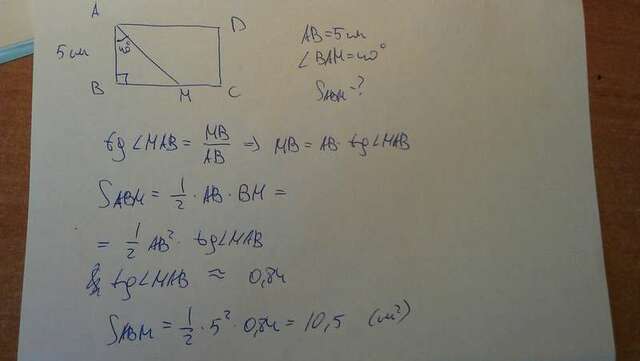 A
D
AB = 5см
5 см
40°
∠BAM = 40°
B
M
C
S_ABM - ?
tg∠MAB = MB/AB ⇒ MB = AB · tg∠MAB
S_ABM = 1/2 · AB · BM =
= 1/2 AB² · tg∠MAB
tg∠MAB ≈ 0,84
S_ABM = 1/2 · 5² · 0,84 = 10,5 (см²)